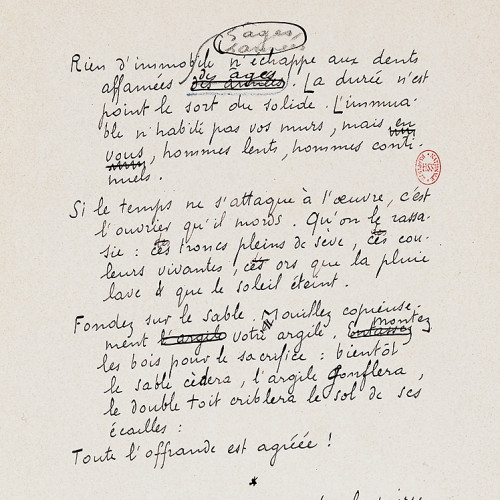 âges
Rien d'immobile n'échappe aux dents
des âges
affamées des années. La durée n'est
point le sort du solide. L'immua-
ble n'habite pas vos murs, mais en
vous, hommes lents, hommes conti-
nuels.
Si le temps ne s'attaque à l'œuvre, c'est
l'ouvrier qu'il mord. Qu'on le rassa-
sie : ces troncs pleins de sève, ces cou-
leurs vivantes, ces ors que la pluie
lave & que le soleil éteint.
Fondez sur le sable. Mouillez copieuse-
ment l'argile votre argile. Entassez Montez
les bois pour le sacrifice : bientôt
le sable cèdera, l'argile gonflera,
le double toit criblera le sol de ses
écailles :
Toute l'offrande est agréée !
*